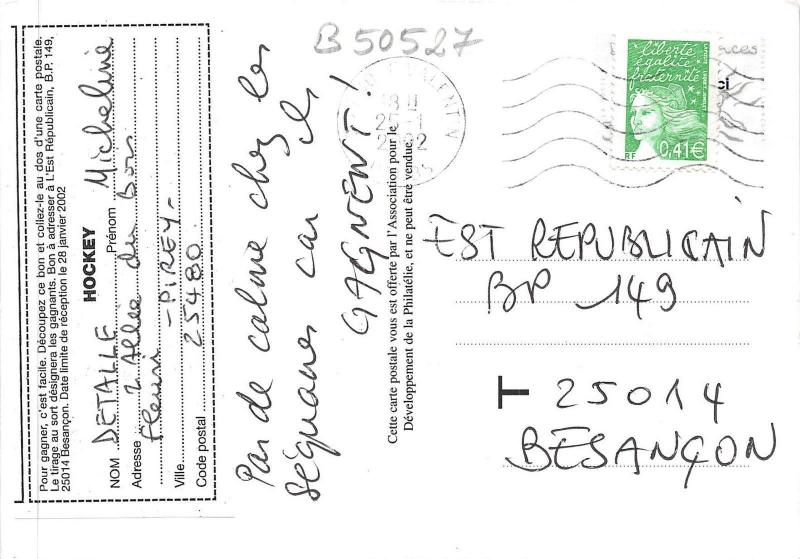 Pour gagner, c'est facile. Découpez ce bon et collez-le au dos d'une carte postale.
Le tirage au sort désignera les gagnants. Bon à adresser à L'Est Républicain, B.P. 149,
25014 Besançon. Date limite de réception le 28 janvier 2002
HOCKEY
NOM DETALLE Prénom Micheline
Adresse 2 Allée du Bois
Fleuri
Ville - PIREY -
Code postal 25480
B 50527
Pas de calme chez les
séquanes car ils
GAGNENT !
Cette carte postale vous est offerte par l'Association pour le
Développement de la Philatélie, et ne peut être vendue.
liberté
égalité
fraternité
RF 0,41€
EST REPUBLICAIN
BP 149
T 25014
BESANÇON